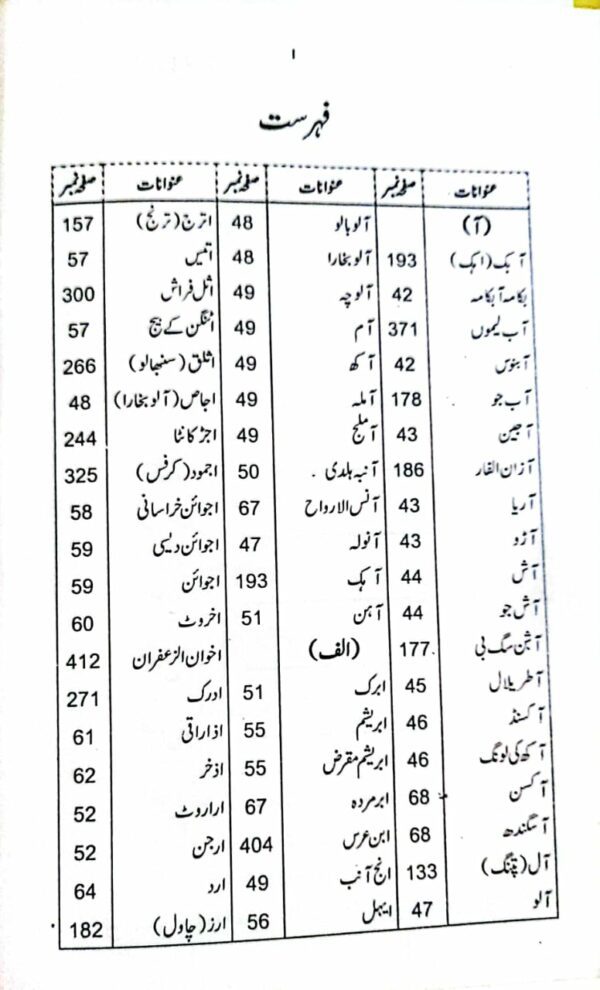 ا
فہرست
عنوانات صفحہ نمبر عنوانات صفحہ نمبر عنوانات صفحہ نمبر
(آ) آلوبالو 48 اترج(ترنج) 157
آہک(اہک) 193 آلوبخارا 48 اتیس 57
بکامہ آبکامہ 42 آلوچہ 49 اثل فراش 300
آب لیموں 371 آم 49 اٹنگن کے بیج 57
آبنوس 42 آکھ 49 اثلق(سنبھالو) 266
آب جو 178 آملہ 49 اجاص(آلوبخارا) 48
آجین 43 آملج 49 اجڑکانٹا 244
آزان الفار 186 آنبہ ہلدی 50 اجمود(کرفس) 325
آریا 43 آنس الارواح 67 اجوائن خراسانی 58
آڑو 43 آنولہ 47 اجوائن دیسی 59
آش 44 آہک 193 اجوائن 59
آش جو 44 آہن 51 اخروٹ 60
سگ بی 177 (الف) اخوان الزعفران 412
آطریلال 45 ابرک 51 ادرک 271
آکسنڈ 46 ابریشم 55 اذاراقی 61
آکھ کی لونگ 46 ابریشم مقرض 55 اذخر 62
آکسن 68 ابرمردہ 67 اراروٹ 52
آسگندھ 68 ابن عرس 404 ارجن 52
آل(پتنگ) 133 انج آنب 49 ارد 64
آلو 47 ابہل 56 ارز(چاول) 182